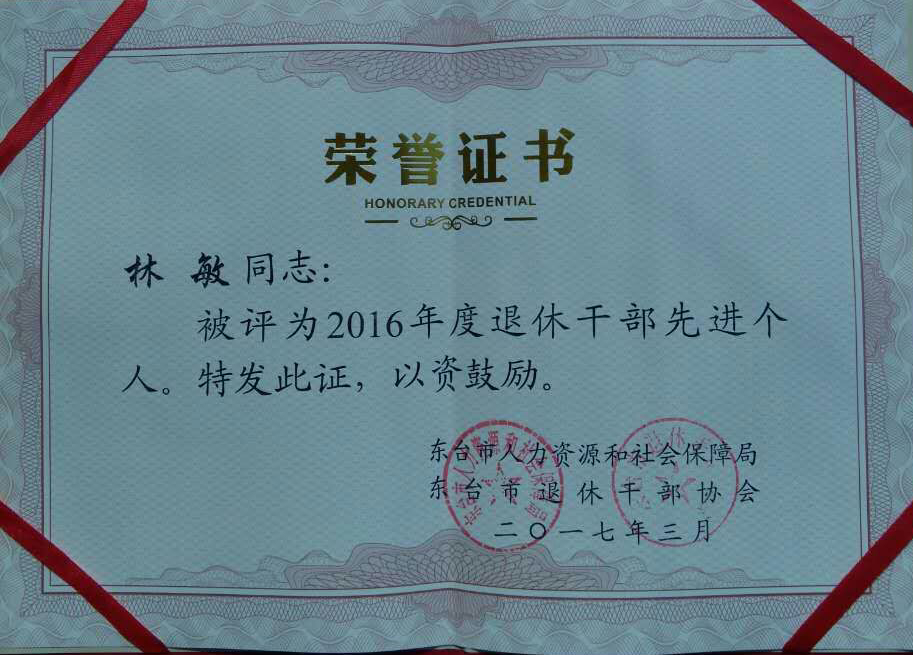 荣誉证书
HONORARY CREDENTIAL
林 敏 同志：
被评为2016年度退休干部先进个
人。特发此证，以资鼓励。
东台市人力资源和社会保障局
东台市退休干部协会
二〇一七年三月